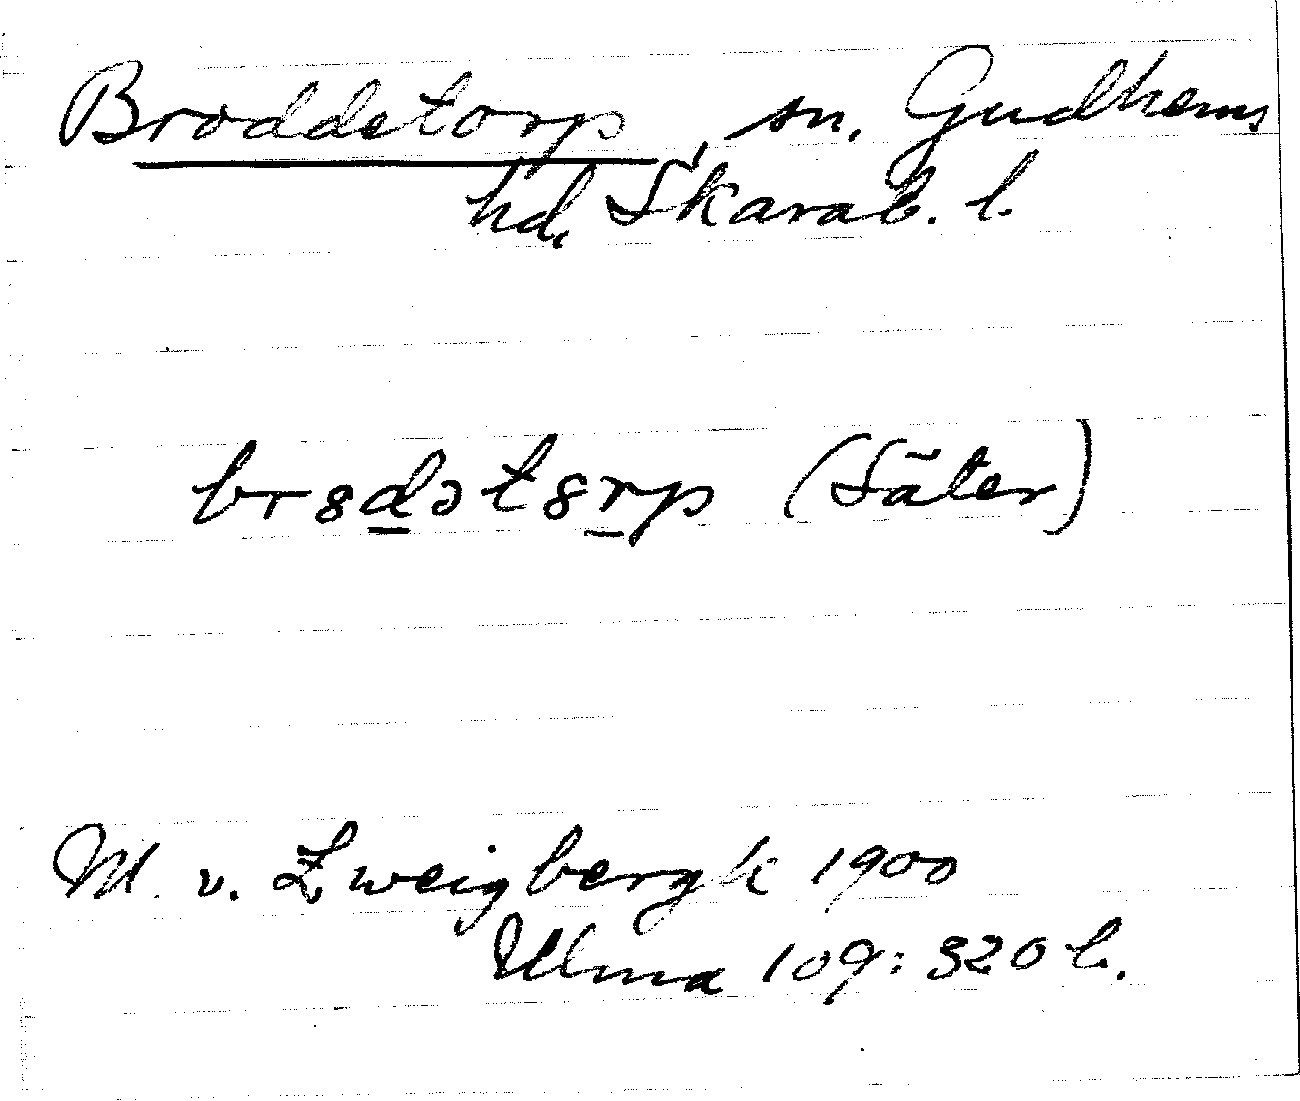 Broddetorp, sn. Gudhems
hd, Skarab. l.
br8d̲ət8r̲p (Säter)
M. v. Zweigbergk 1900
Ulma 109: 320 b.